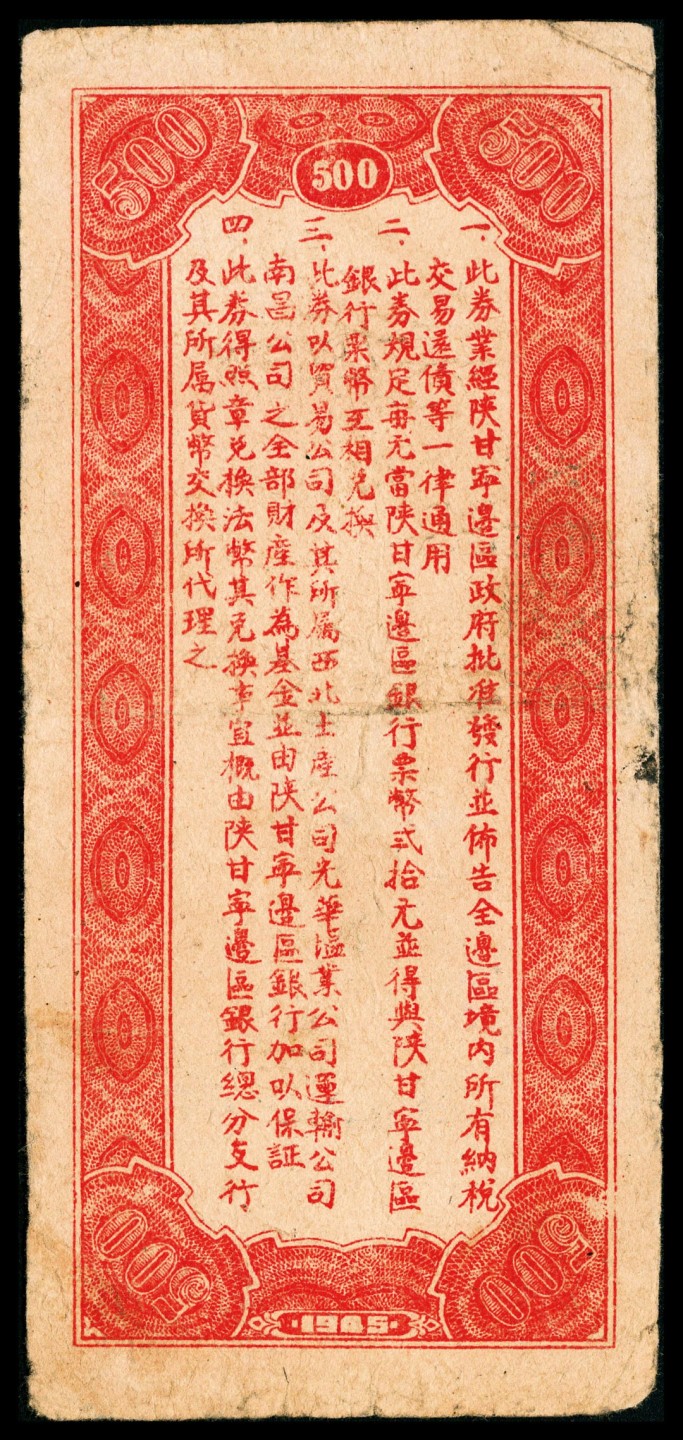 500
500
500
一、此券業經陝甘寧邊區政府批准發行並佈告全邊區境內所有納稅
交易還債等一律通用
二、此券規定每元當陝甘寧邊區銀行票幣弍拾元並得與陝甘寧邊區
銀行票幣互相兌換
三、此券以貿易公司及其所屬西北土產公司光華塩業公司運輸公司
南昌公司之全部財產作為基金並由陝甘寧邊區銀行加以保証
四、此券得照章兌換法幣其兌換事宜概由陝甘寧邊區銀行總分支行
及其所屬貨幣交換所代理之
500
·1945·
500